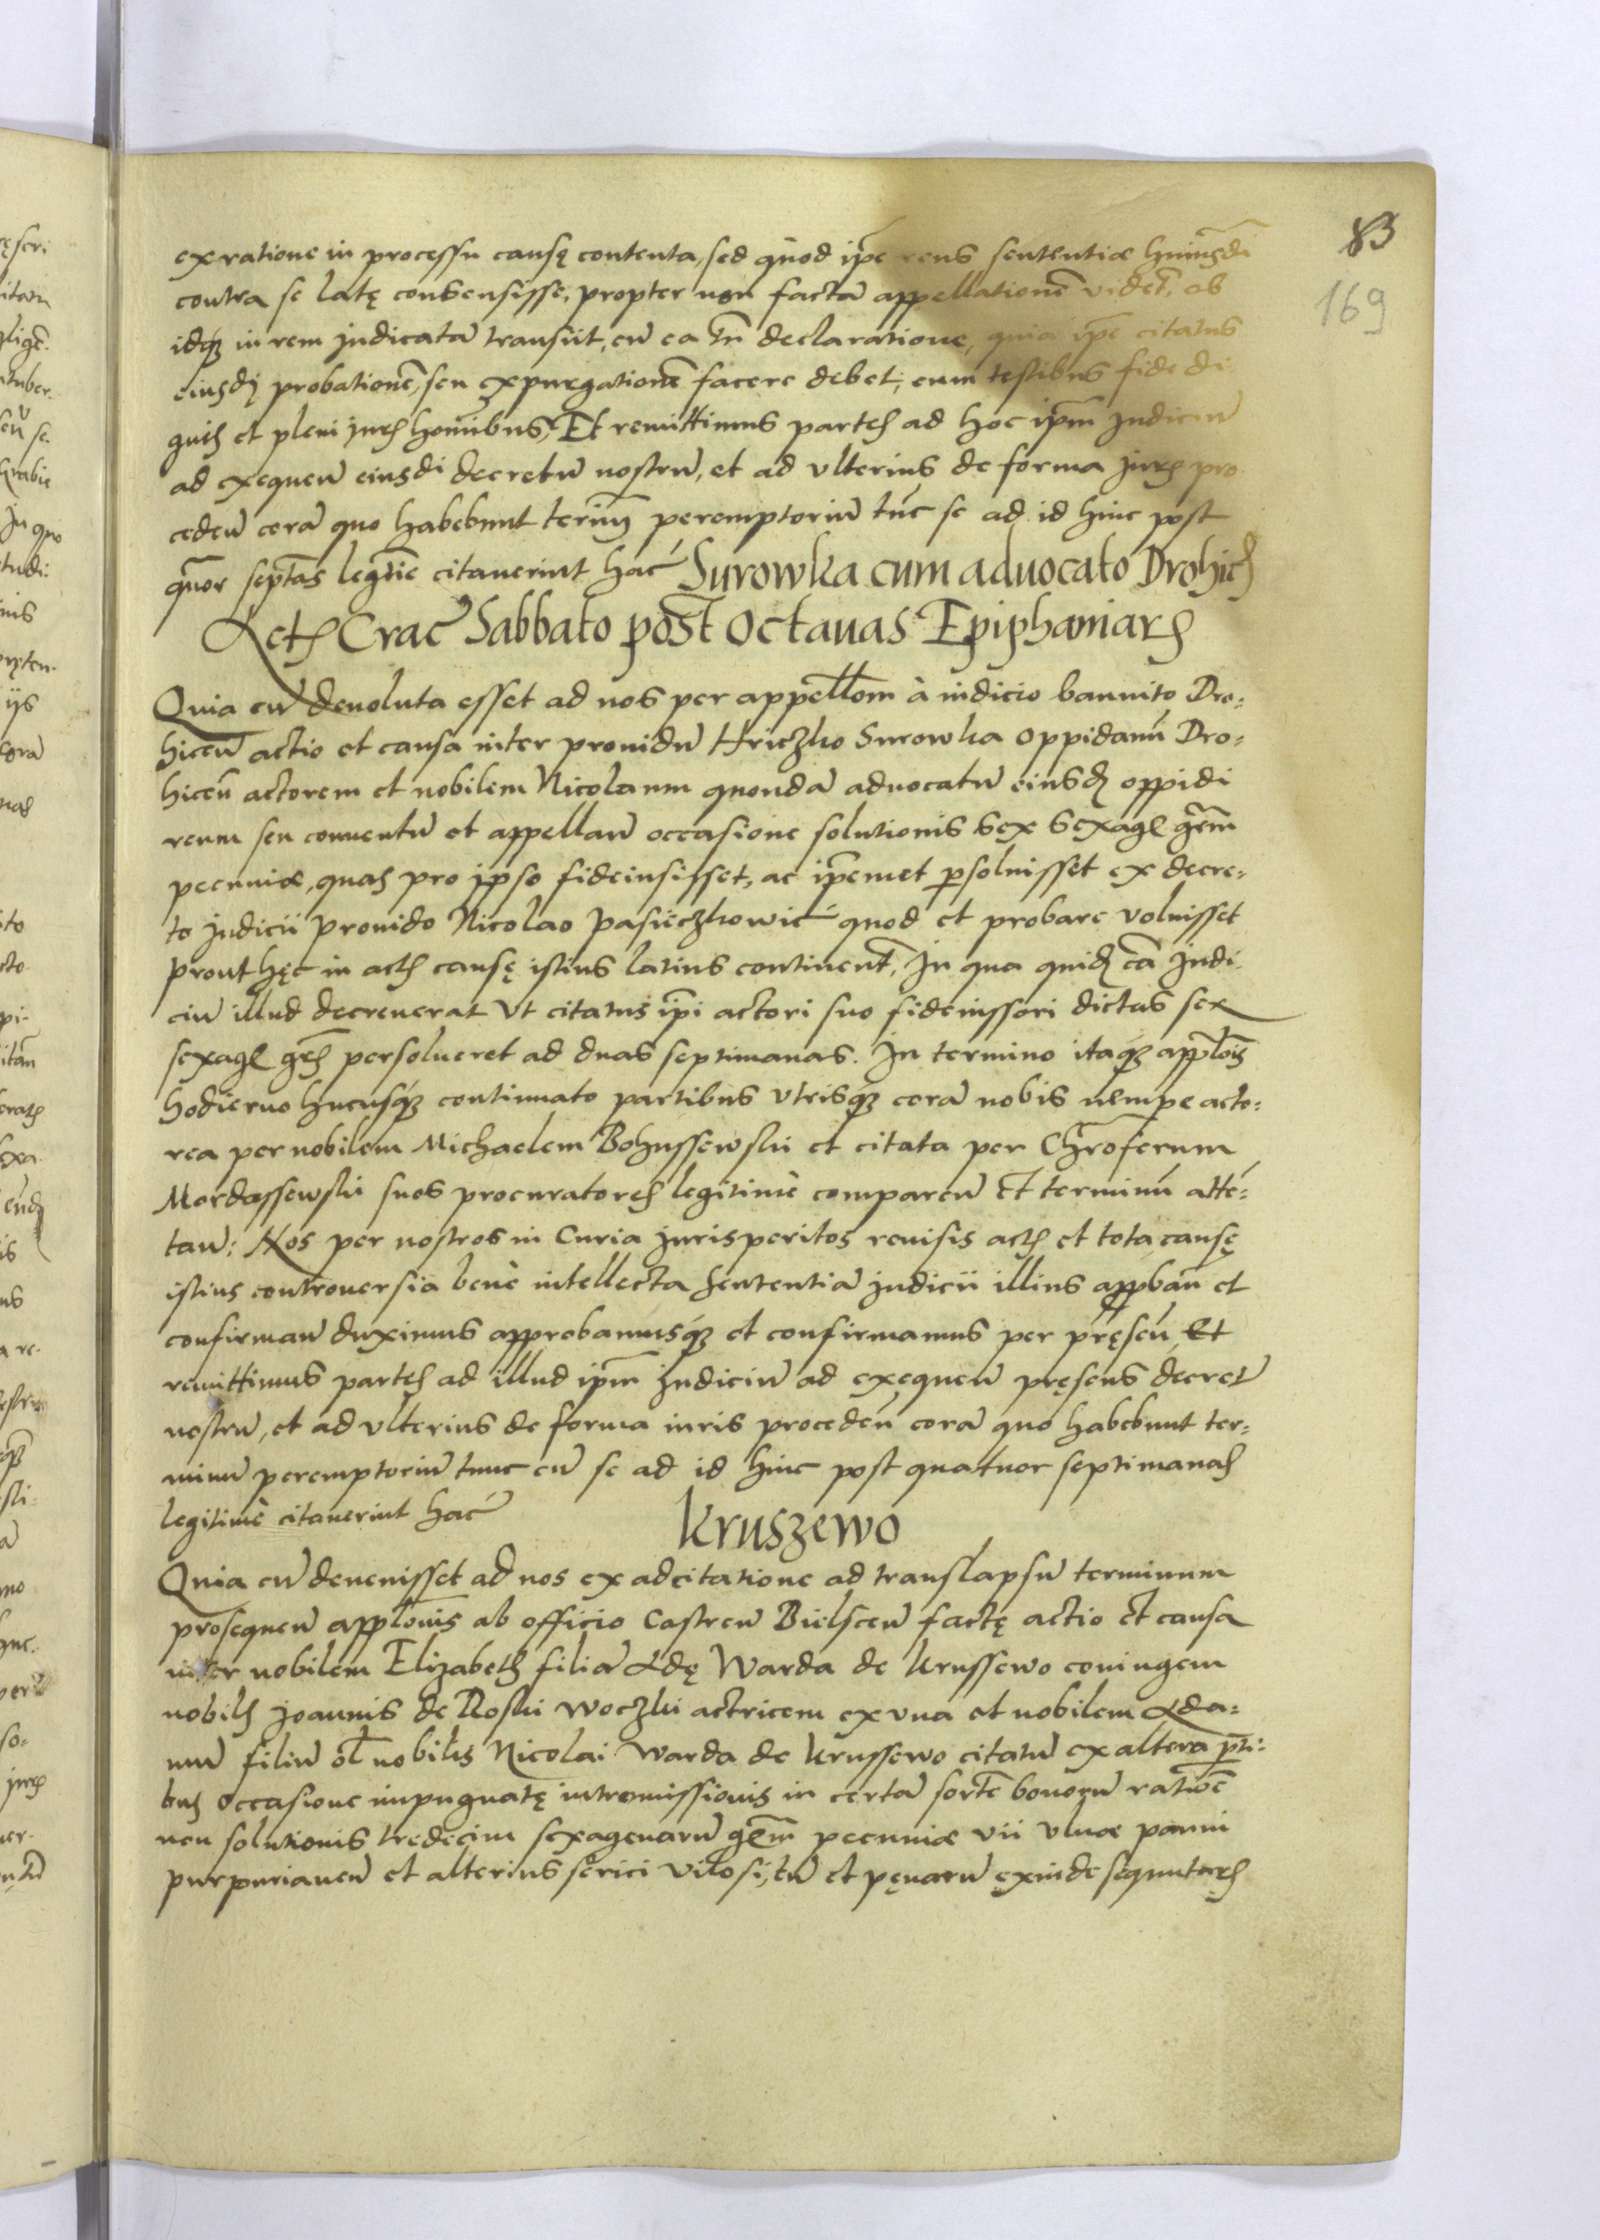 83
169
ex ratione in processu causę contenta, sed quod ip̃e reus sententiæ huiusd̃i
contra se latę consensisse, propter non factã appellationẽ videt̃, ob
idq; in rem iudicatã transiit, cũ ea tñ declaratione, quia ip̃e citatus
eiusdj probationẽ, seu expurgationẽ facere debet, cum testibus fide di
gnis et pleni juris hominibus, Et remittimus partes ad hoc ip̃m judiciũ
ad exequeñ eiusdi decretũ nostrũ, et ad vlterius de forma juris pro
cedeñ corã quo habebunt termĩ peremptoriũ tũc se ad id hinc post
quãor septãs legitĩe citauerint hac̃ Surowka cum aduocato Drohic̃
Act̃ Crac̃ Sabbato post Octauas Epiphaniar̃
Quia cũ deuoluta esset ad nos per appellõm à iudicio bannito Dro:
hiceñ actio et causa inter prouidũ Hriczko Surowka oppidanũ Dro:
hiceñ actorem et nobilem Nicolaum quondã aduocatũ eiusd̃ oppidi
reum seu conuentũ et appellañ occasione solutionis sex sexag̃ grẽm
pecuniæ, quas pro ipso fideiusisset, ac ip̃emet persoluisset ex decre:
to judicii prouido Nicolao Pasieczkowic̃ quod et probare voluisset
prout hęc in actis causę istius latius continent̃, In qua quid̃ cã Judi
ciũ illud decreuerat Vt citatus ip̃i actori suo fideiussori dictas sex
sexag̃ grẽs persolueret ad duas septimanas. In termino itaq; applõis
hodierno hucusq; continuato partibus vtrisq; corã nobis nempe acto:
rea per nobilem Michaelem Bohussewski et citata per Chr̃oferum
Mordassewski suos procuratores legitimè compareñ et terminũ atte:
tañ: Nos per nostros in Curia jurisperitos reuisis actis et tota causę
istius controuersia benè intellecta sententiã judicii illius appbañ et
confirmañ duximus approbamusq; et confirmamus per pręseñ Et
remittimus partes ad illud ip̃m judiciũ ad exequeñ pręsens decret̃
nostrũ, et ad vlterius de forma iuris procedeñ corã quo habebunt ter:
minũ peremptoriũ tunc cũ se ad id hinc post quatuor septimanas
legitimè citauerint hac̃
Kruszewo
Quia cũ deuenisset ad nos ex adcitatione ad translapsũ terminum
prosequeñ applõnis ab officio Castreñ Bielsceñ factę actio et causa
inter nobilem Elizabeth filiã Adę Warda de Krussewo coniugem
nobilis Joannis de Roski Woczki actricem ex vna et nobilem Ada:
mũ filiũ ol̃ nobilis Nicolai Warda de Krussewo citatũ ex altera p̃ti:
bus occasione impugnatę intromissionis in certã sortẽ bonorũ ratiõe
non solutionis tredecim sexagenarũ grẽm pecuniæ vii vlnæ panni
purpurianeñ et alterius serici vilosi, tũ et pęnarũ exinde sequutar̃